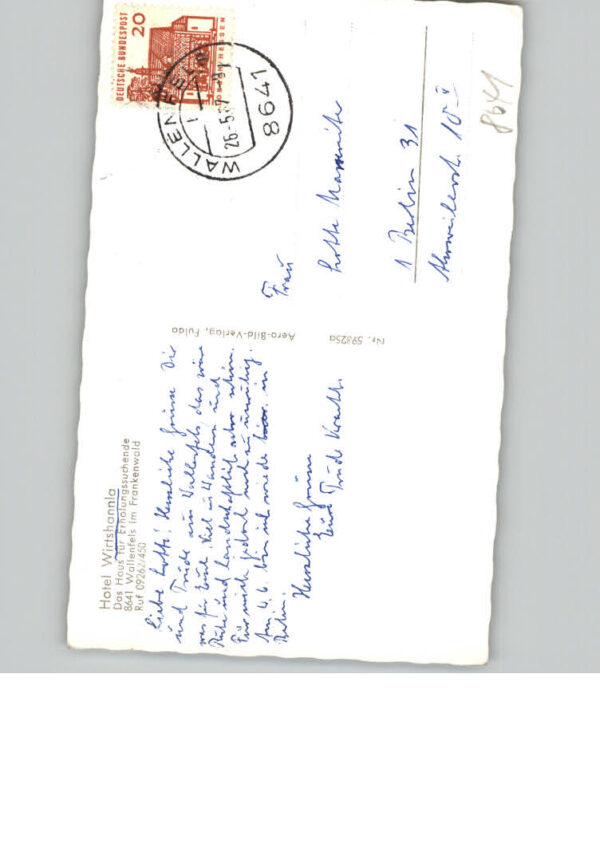 Hotel Wirtshannla
Das Haus für Erholungssuchende
8641 Wallenfels im Frankenwald
Ruf 09262/450
Liebe Lotte! Herzliche Grüsse Dir
und Trude aus Wallenfels, das wäre
was für Euch, viel zu Wandern und
Ruhe und landschaftlich sehr schön.
Für mich jedoch
Am 4.6. bin ich wieder in
Berlin.
Herzliche Grüsse
Eure Trude
Aero-Bild-Verlag, Fulda
Nr. 59825a
DEUTSCHE BUNDESPOST
20
WALLENFELS
26-5
8641
Frau
Lotte
1 Berlin 31
Ahrweilerstr. 18
8641